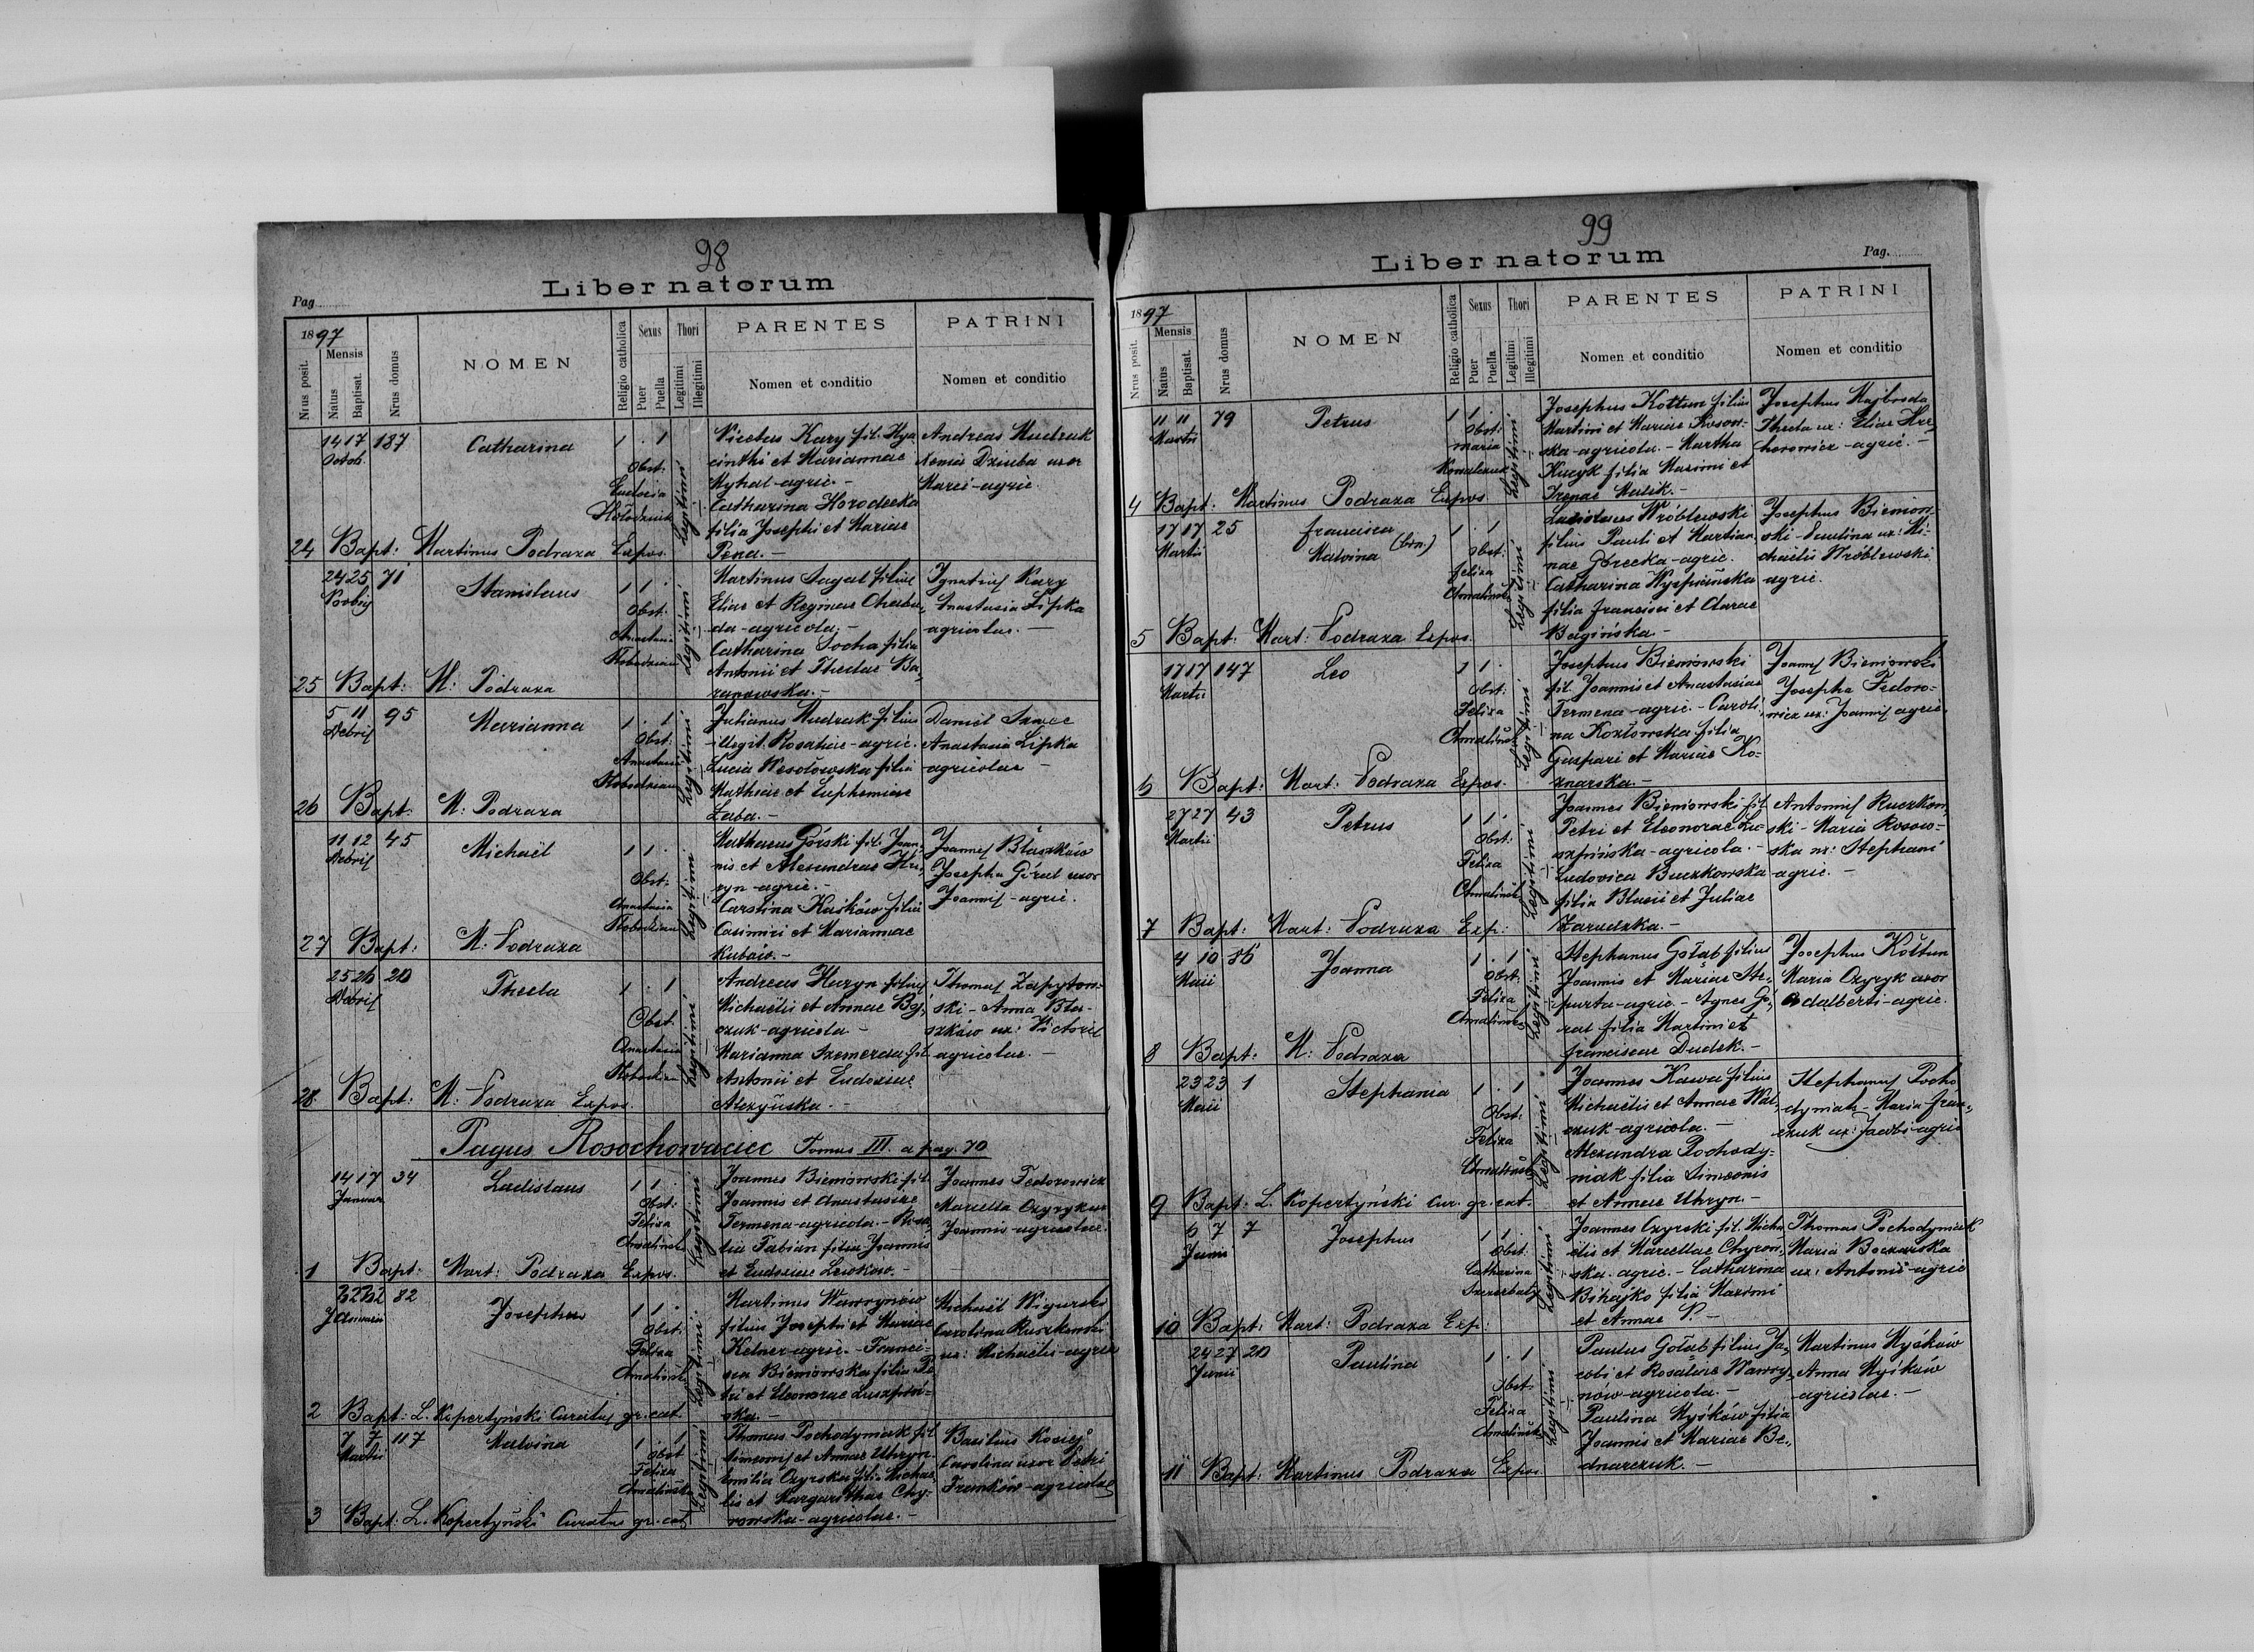 98
Liber natorum
Pag
1897
Nrus posit.
Mensis
Natus
Baptisat.
Nrus domus
NOMEN
Religio catholica
Sexus
Puer
Puella
Thori
Legitimi
Illegitimi
PARENTES
Nomen et conditio
PATRINI
Nomen et conditio
14 17 137 Catharina 1 . 1
Octob.
Obst:
Eudocia
Legitimi
Nicetus Kary fil. Hya
cinthi et Mariannae
Myhal-agric.-
Catharina Horodecka
filia Josephi et Mariae
Pena.-
Andreas Mudrak
Xenia Dziuba uxor
Marci-agric.
24 Bapt: Martinus Podraza Expos.
24 25 71 Stanislaus 1 1 .
Novbris
Obst:
Anastasia
Legitimi
Martinus Sagal filius
Eliae et Reginae Chaba,
da-agricola.-
Catharina Socha filia
Antonii et Theclae Ba,
zanowska.-
Ignatius Kary
Anastasia Lipka
agricolae.-
25 Bapt: M: Podraza
5 11 95 Marianna 1 . 1
Debris
Obst:
Anastasia
Legitimi
Julianus Mudrak filius
illegit. Rosaliae-agric.
Lucia Wesołowska filia
Mathiae et Euphemiae
Łaba.-
Daniel
Anastasia Lipka
agricolae-
26 Bapt. M: Podraza
11 12 45 Michaël 1 1 .
Debris
Obst:
Anastasia
Legitimi
Mathaeus Górski fil. Joan,
nis et Alexandrae Hu,
ryn-agric.-
Carolina Kuśków filia
Casimiri et Mariannae
Kubów.-
Joannes Błaszków
Josepha Góral uxor
Joannis-agric.
27 Bapt: M: Podraza
25 26 20 Thecla 1 . 1
Debris
Obst.
Anastasia
Legitimi
Andreas Huryn filius
Michaëlis et Annae By,
czuk-agricola-
Marianna Szemerda fil.
Antonii et Eudoxiae
Alexyńska.-
Thomas Zapytow=
ski-Anna Bła-
szków ux: Victoris
agricolae.-
28 Bapt: M: Podraza Expos.
Pagus Rosochowaciec Tomus III. a pag. 70
14 17 34 Ladislaus 1 1 .
Januar
Obst:
Felixa
Legitimi
Joannes Bieniowski fil.
Joannis et Anastasiae
Termena-agricola.-Rosa,
lia Fabian filia Joannis
et Eudoxiae Lewkow.-
Joannes Fedorowicz
Marcella Czyryk ux
Joannis-agricolae.
1 Bapt: Mart: Podraza Expos.
82 Josephus 1 1 .
Januarii
Obst:
Felixa
Legitimi
Martinus Wawrynow
filius Josephi et Mariae
Kelner-agric.-Franci-
sca Bieniowska filia Pe
tri et Eleonorae Luszpiń=
ska.-
Michaël Wigurski
Carolina
ux: Michaëlis-agric
2 Bapt: L. Kopertyński Curatus gr. cat.
7 7 117 Malvina 1 . 1
Martii
Obst
Felixa
Legitimi
Thomas Pochodyniak fil.
Simeonis et Annae Uhryn
Emilia Czyrska filia Michaë
lis et Margarithae Chy-
rowska-agricolae.-
Basilius
Carolina uxor Petri
Franków-agricolae
3 Bapt: L. Kopertyński Curatus gr. cat.
99
Liber natorum
Pag.
1897
Nrus posit.
Mensis
Natus
Baptisat.
Nrus domus
NOMEN
Religio catholica
Sexus
Puer
Puella
Thori
Legitimi
Illegitimi
PARENTES
Nomen et conditio
PATRINI
Nomen et conditio
11 11 79 Petrus 1 1 .
Martii
Obst:
Maria
Kowalczuk
Legitimi
Josephus Kottun filius
Martini et Mariae Kosow-
ska-agricola.-Martha
Kucyk filia Maximi et
Irenae Malik.-
Josephus Hajboda
Thecla ux: Eliae Hre,
horowicz-agric.-
4 Bapt: Martinus Podraza Expos.
17 17 25 Francisca 1 . 1
Martii Malvina (bin.)
Obst:
Felixa
Legitimi
Ladislaus Wróblewski
filius Pauli et Marian,
nae Górecka-agric.
Catharina Wyspiańska
filia Francisci et Clarae
Bagińska-
Josephus Bieniow-
ski-Paulina ux: Mi-
chaëlis Wróblewski
agric.
5 Bapt: Mart: Podraza Expos.
17 17 147 Leo 1 1 .
Martii
Obst:
Felixa
Legitimi
Josephus Bieniowski
fil. Joannis et Anastasiae
Termena-agric.-Caroli,
na Kozłowska filia
Gaspari et Mariae Ko-
znarska-
Joannes Bieniowski
Josepha Fedoro=
wicz ux: Joannis agric.
6 Bapt: Mart: Podraza Expos.
27 27 43 Petrus 1 1 .
Martii
Obst:
Felixa
Legitimi
Joannes Bieniowski fil.
Petri et Eleonorae Lu-
szpińska-agricola.-
Ludovica Buczkowska
filia Blasii et Juliae
Zarudzka.-
Antonius Ruczkow,
ski-Maria Rosow=
ska ux: Stephani
agric.-
7 Bapt: Mart: Podraza Exp:
4 10 86 Joanna 1 . 1
Maii
Obst.
Felixa
Legitimi
Stephanus Gołąb filius
Joannis et Mariae Ste-
purta-agric.-Agnes Gó,
ral filia Martini et
Franciscae Dudek.-
Josephus Kottun
Maria Czyryk uxor
Adalberti-agric.
8 Bapt: M: Podraza
23 23 1 Stephania 1 . 1
Maii
Obst:
Felixa
Legitimi
Joannes Kawa filius
Michaëlis et Annae Wal,
czuk-agricola.-
Alexandra Pochody=
niak filia Simeonis
et Annae Uhryn.-
Stephanus Pocho
dyniak-Maria Fran=
czuk ux: Jacobi-agric
9 Bapt: L. Kopertyński Cur. gr. cat.
6 7 7 Josephus 1 1 .
Junii
Obst:
Catharina
Szczerbaty
Legitimi
Joannes Czyrski fil. Micha
ëlis et Marcellae Chyrow,
ska-agric.-Catharina
Bihajko filia Maximi
et Annae P.-
Thomas Pochodyniak
Maria Boczarska
ux: Antonii-agric
10 Bapt: Mart: Podraza Exp:
24 27 20 Paulina 1 . 1
Junii
Obst.
Felixa
Legitimi
Paulus Gołąb filius Ja,
cobi et Rosaliae Wawry
nów-agricola.-
Paulina Myśków filia
Joannis et Mariae Be,
dnarczuk.-
Martinus Myśków
Anna Myśków
agricolae.-
11 Bapt: Martinus Podraza Expos.